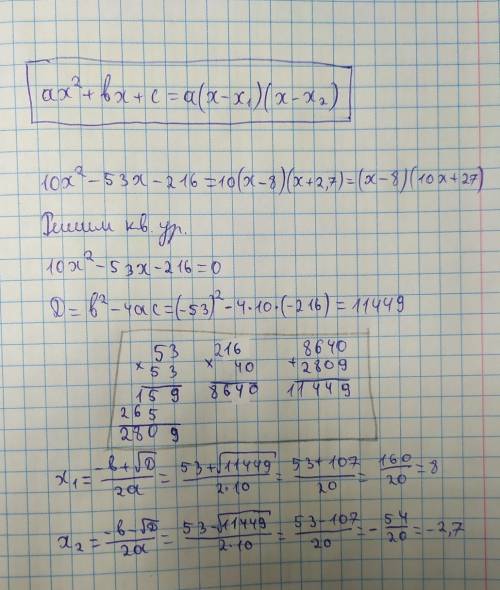 ax² + bx + c = a(x-x₁)(x-x₂)
10x² - 53x - 216 = 10(x-8)(x+2,7) = (x-8)(10x+27)
Решим кв. ур.
10x² - 53x - 216 = 0
D = b² - 4ac = (-53)² - 4·10·(-216) = 11449
53 216 8640
× 53 × 40 + 2809
159 8640 11449
265
2809
x₁ = (-b+√D)/2a = (53+√11449)/2·10 = (53+107)/20 = 160/20 = 8
x₂ = (-b-√D)/2a = (53-√11449)/2·10 = (53-107)/20 = -54/20 = -2,7